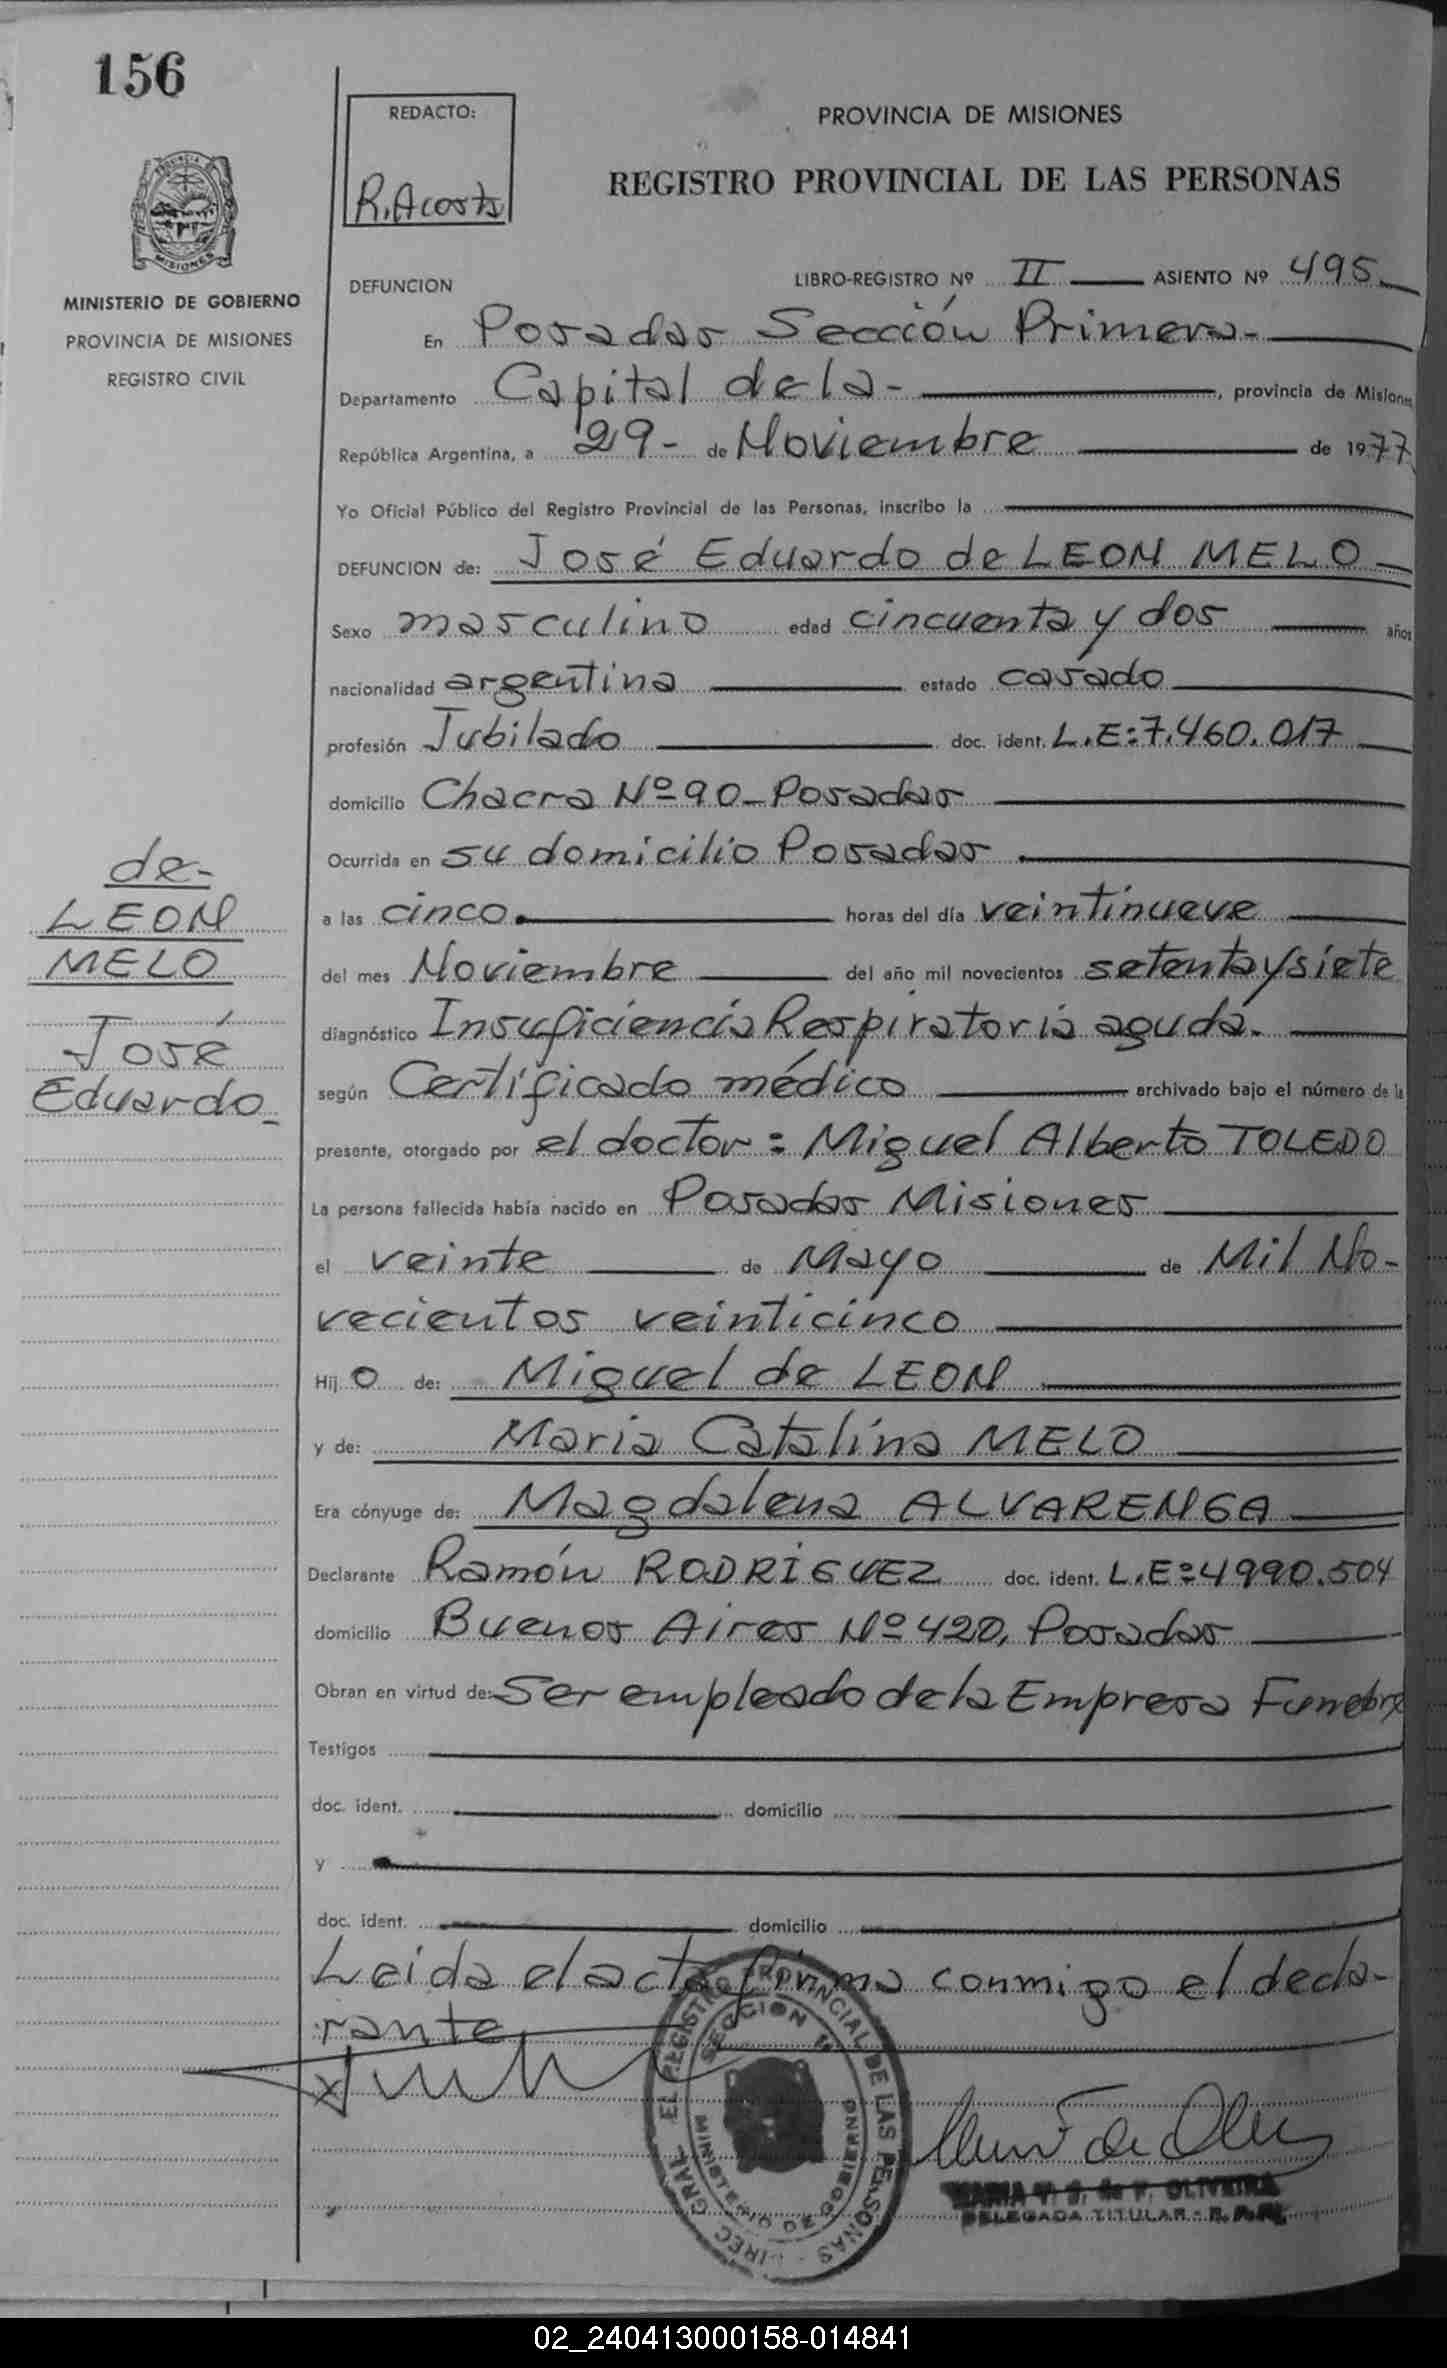 156
REDACTO:
R. Acosta
PROVINCIA DE MISIONES
REGISTRO PROVINCIAL DE LAS PERSONAS
PROVINCIA DE
MISIONES
MINISTERIO DE GOBIERNO
PROVINCIA DE MISIONES
REGISTRO CIVIL
DEFUNCION LIBRO-REGISTRO Nº II ASIENTO Nº 495
En Posadas Sección Primera-
Departamento Capital de la- , provincia de Misiones
República Argentina, a 29- de Noviembre de 1977
Yo Oficial Público del Registro Provincial de las Personas, inscribo la
DEFUNCION de: José Eduardo de LEON MELO
Sexo masculino edad cincuenta y dos años
nacionalidad argentina estado casado
profesión Jubilado doc. ident. L.E:7.460.017
domicilio Chacra Nº 90_Posadas
Ocurrida en su domicilio Posadas
a las cinco. horas del día veintinueve
del mes Noviembre del año mil novecientos setenta y siete
diagnóstico Insuficiencia Respiratoria aguda.
según Certificado médico archivado bajo el número de la
presente, otorgado por el doctor: Miguel Alberto TOLEDO
La persona fallecida había nacido en Posadas Misiones
el veinte de Mayo de Mil No-
vecientos veinticinco
Hij o de: Miguel de LEON
y de: Maria Catalina MELO
Era cónyuge de: Magdalena ALVARENGA
Declarante Ramón RODRIGUEZ doc. ident. L.E:4990.504
domicilio Buenos Aires Nº 420, Posadas
Obran en virtud de: Ser empleado de la Empresa Funebre
Testigos
doc. ident. domicilio
y
doc. ident. domicilio
Leida el acta firma conmigo el decla-
rante
de-
LEON
MELO
José
Eduardo_
REGISTRO PROVINCIAL DE LAS PERSONAS
SECCION
MINISTERIO DE GOBIERNO
OLIVEIRA
DELEGADA TITULAR - R.
02_240413000158-014841